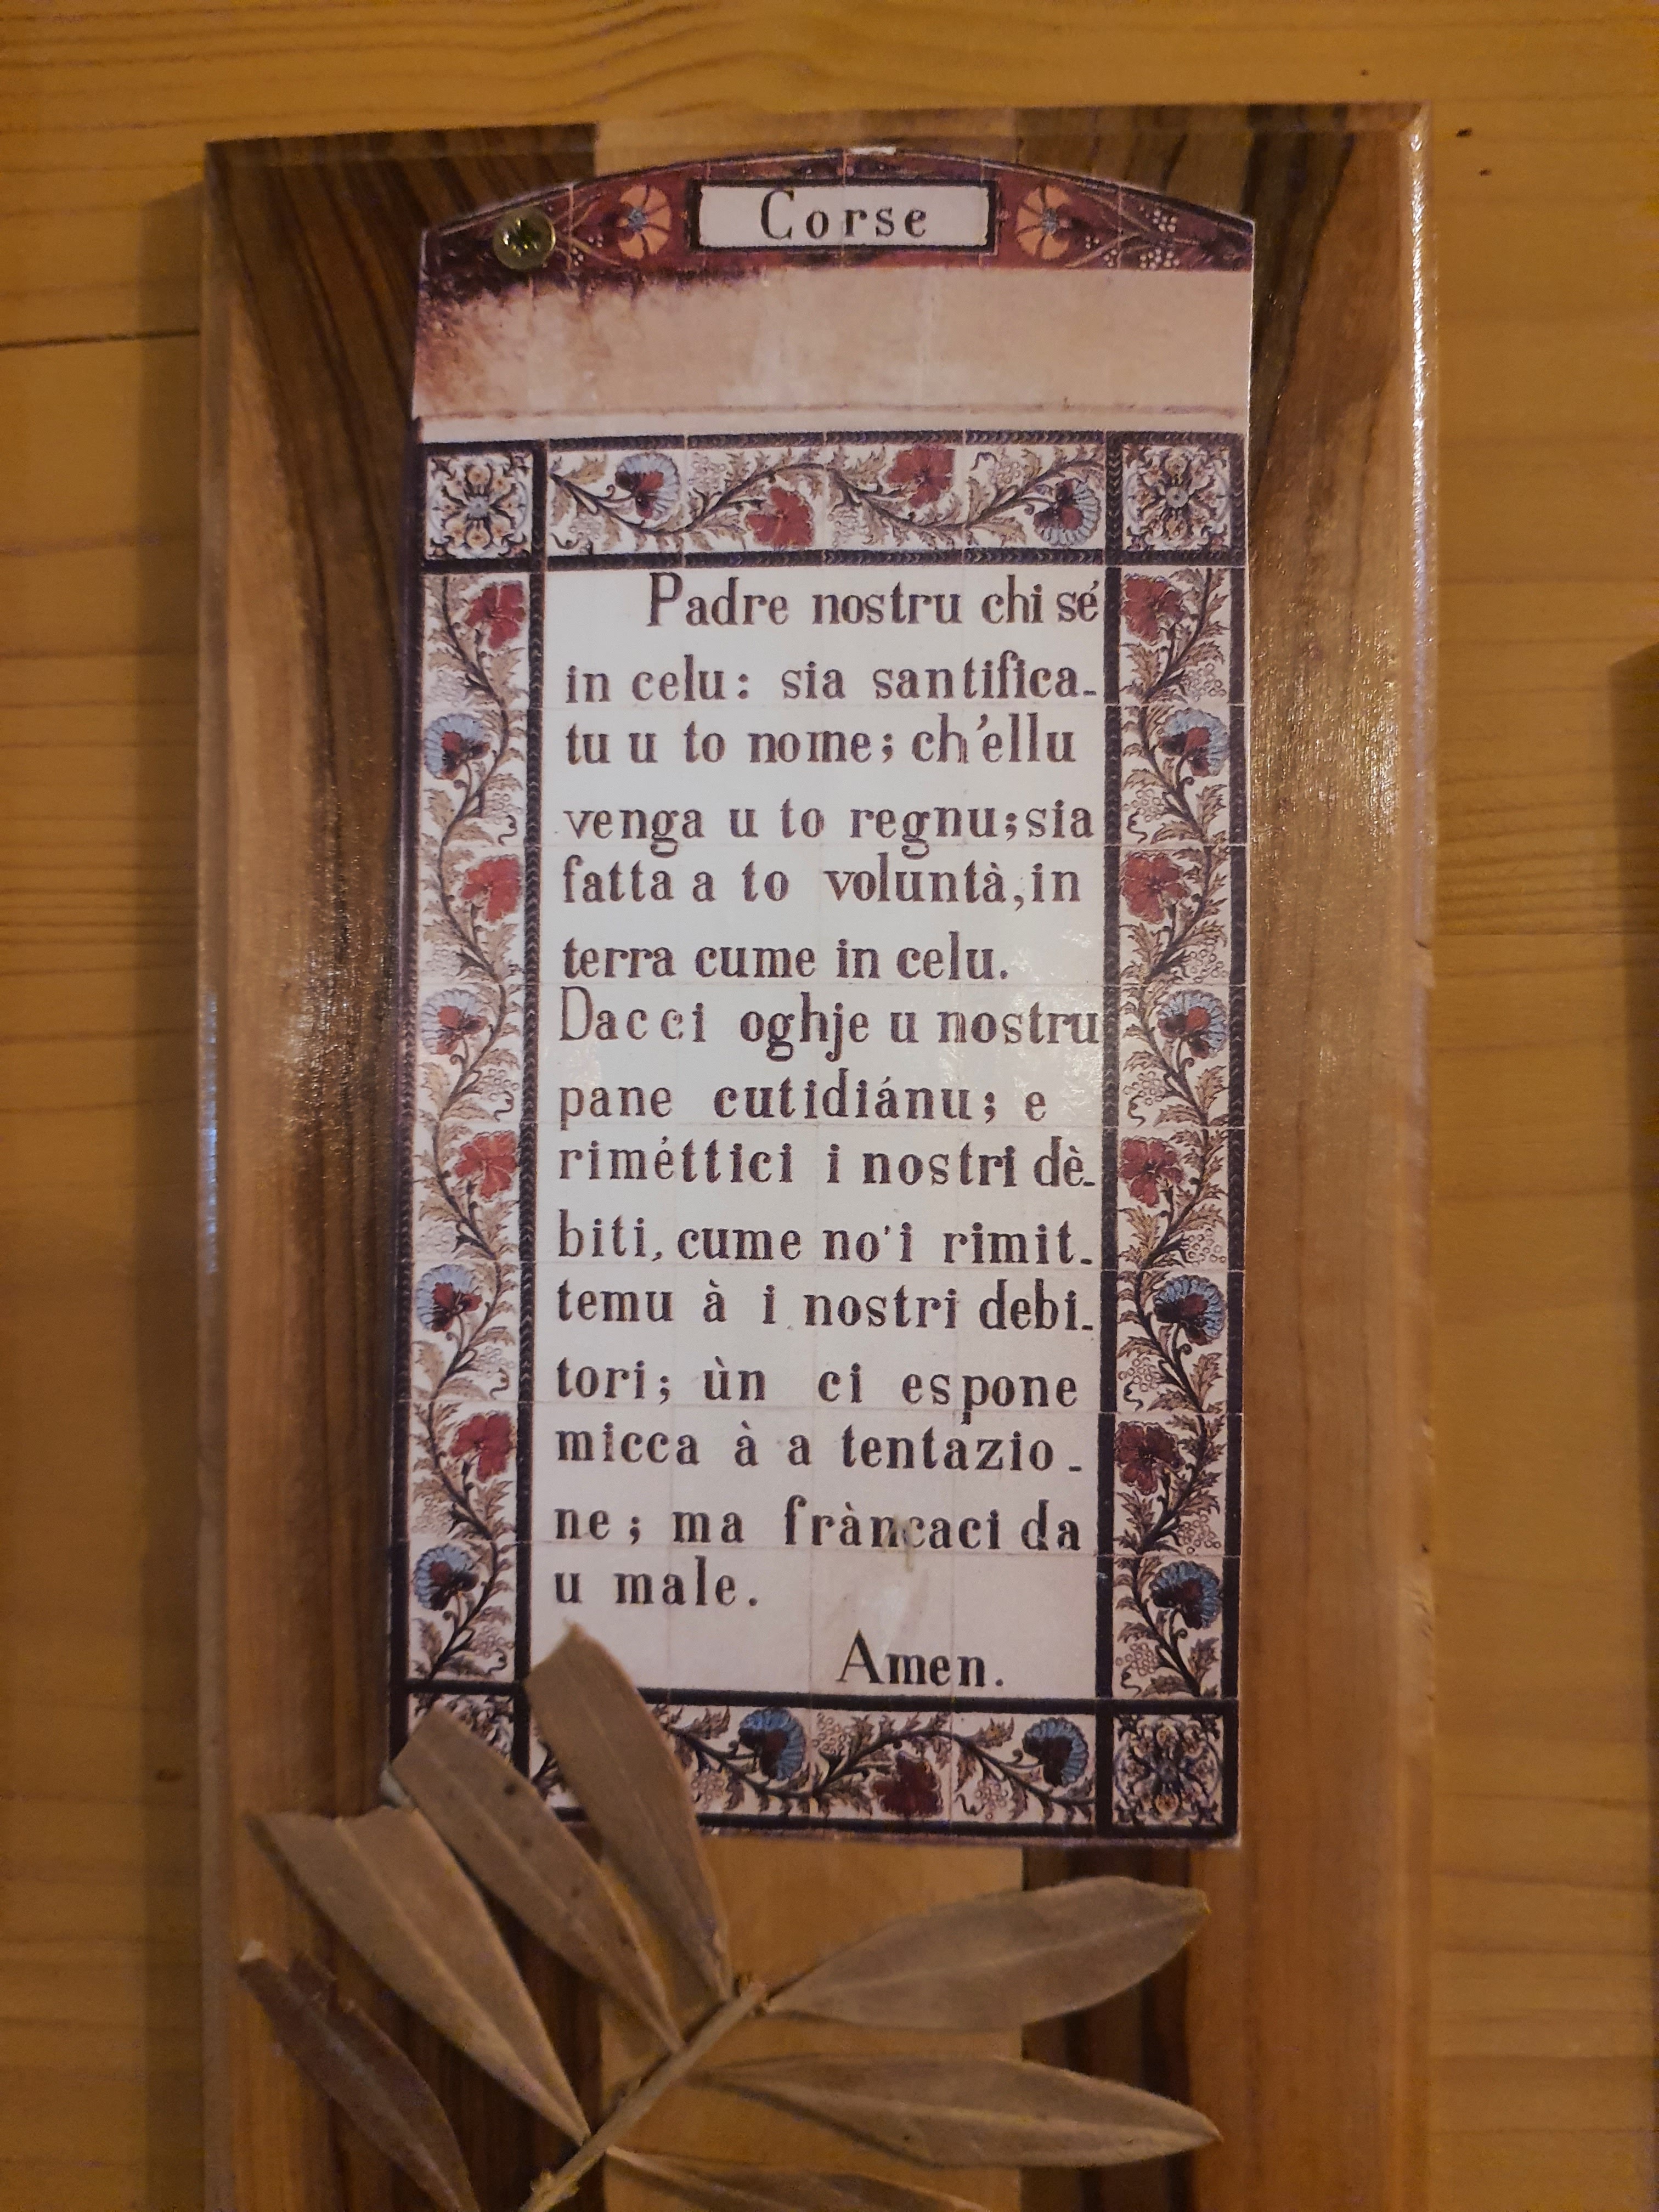 Corse
Padre nostru chi sé
in celu: sia santifica-
tu u to nome; ch'ellu
venga u to regnu; sia
fatta a to voluntà, in
terra cume in celu.
Dacci oghje u nostru
pane cutidiánu; e
riméttici i nostri dè-
biti, cume no'i rimit-
temu à i nostri debi-
tori; ùn ci espone
micca à a tentazio-
ne; ma fràncaci da
u male.
Amen.